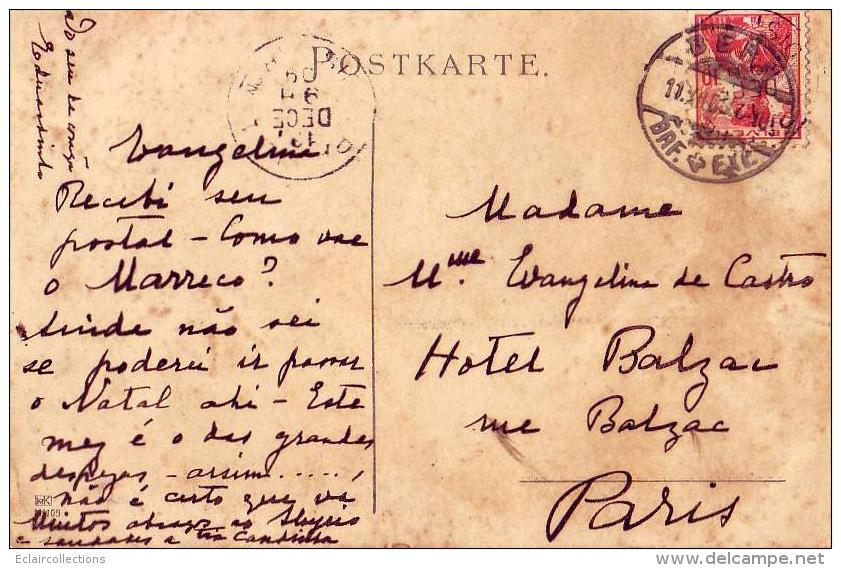 POSTKARTE.
Evangelina
Recebi seu
postal – Como vae
o Marreco?
Ainda não sei
se poderei ir passar
o Natal ahi – Este
mez é o das grandes
despezas – assim.....,
não é certo que va
Muitos abraços ao
e saudades a tia Candinha
Do seu do
Eduardinho
Madame
Mme. Evangelina de Castro
Hotel Balzac
rue Balzac
Paris
BERN
BRF. EXP.
DECE
Eclaircollections
www.delcampe.net